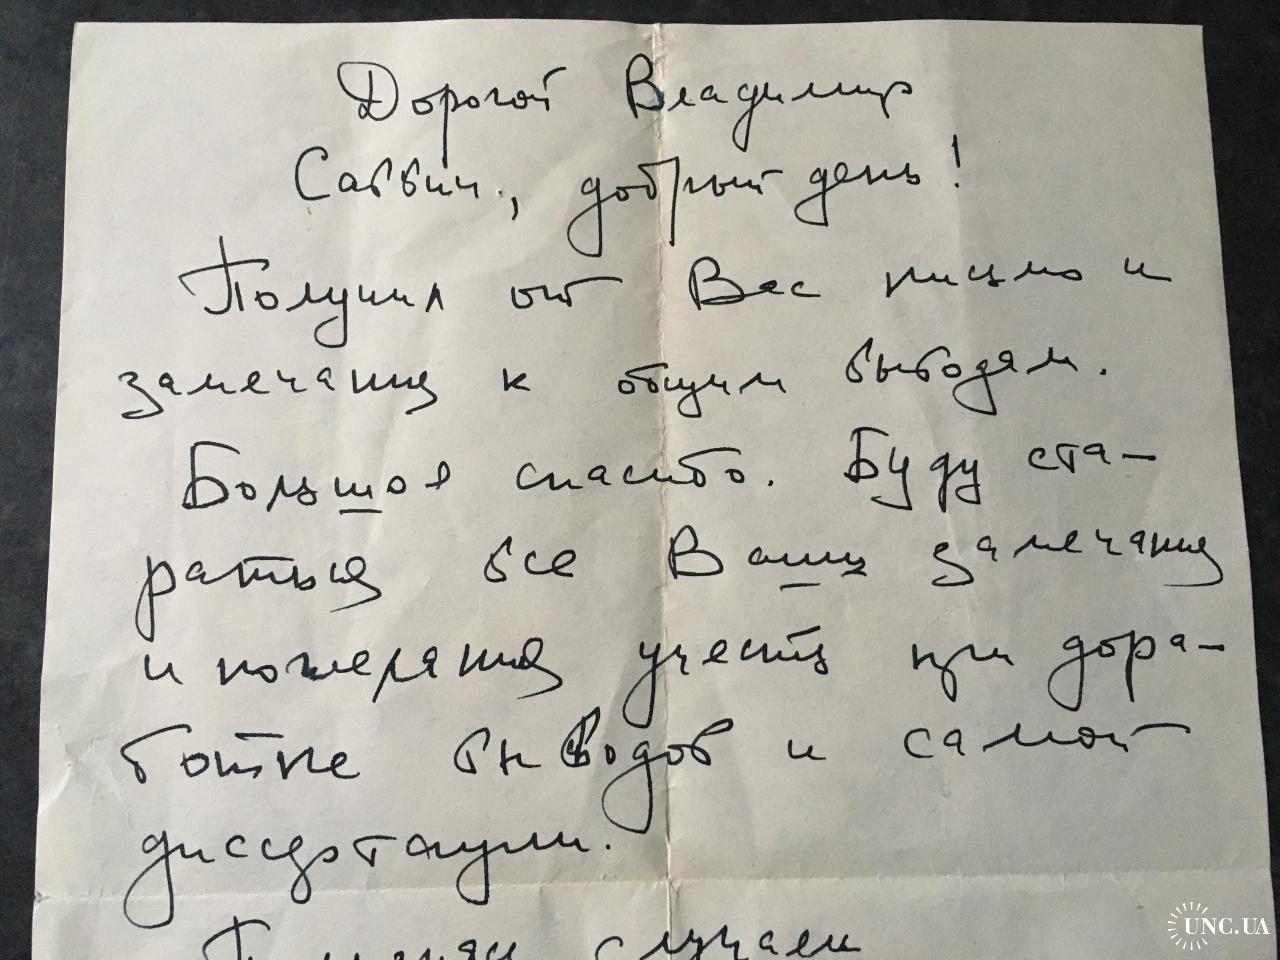 Дорогой Владимир
Саввич, добрый день!
Получил от Вас письмо и
замечания к общим выводам.
Большое спасибо. Буду ста-
раться все Ваши замечания
и пожелания учесть при дора-
ботке выводов и самой
диссертации.
случаем
UNC.UA